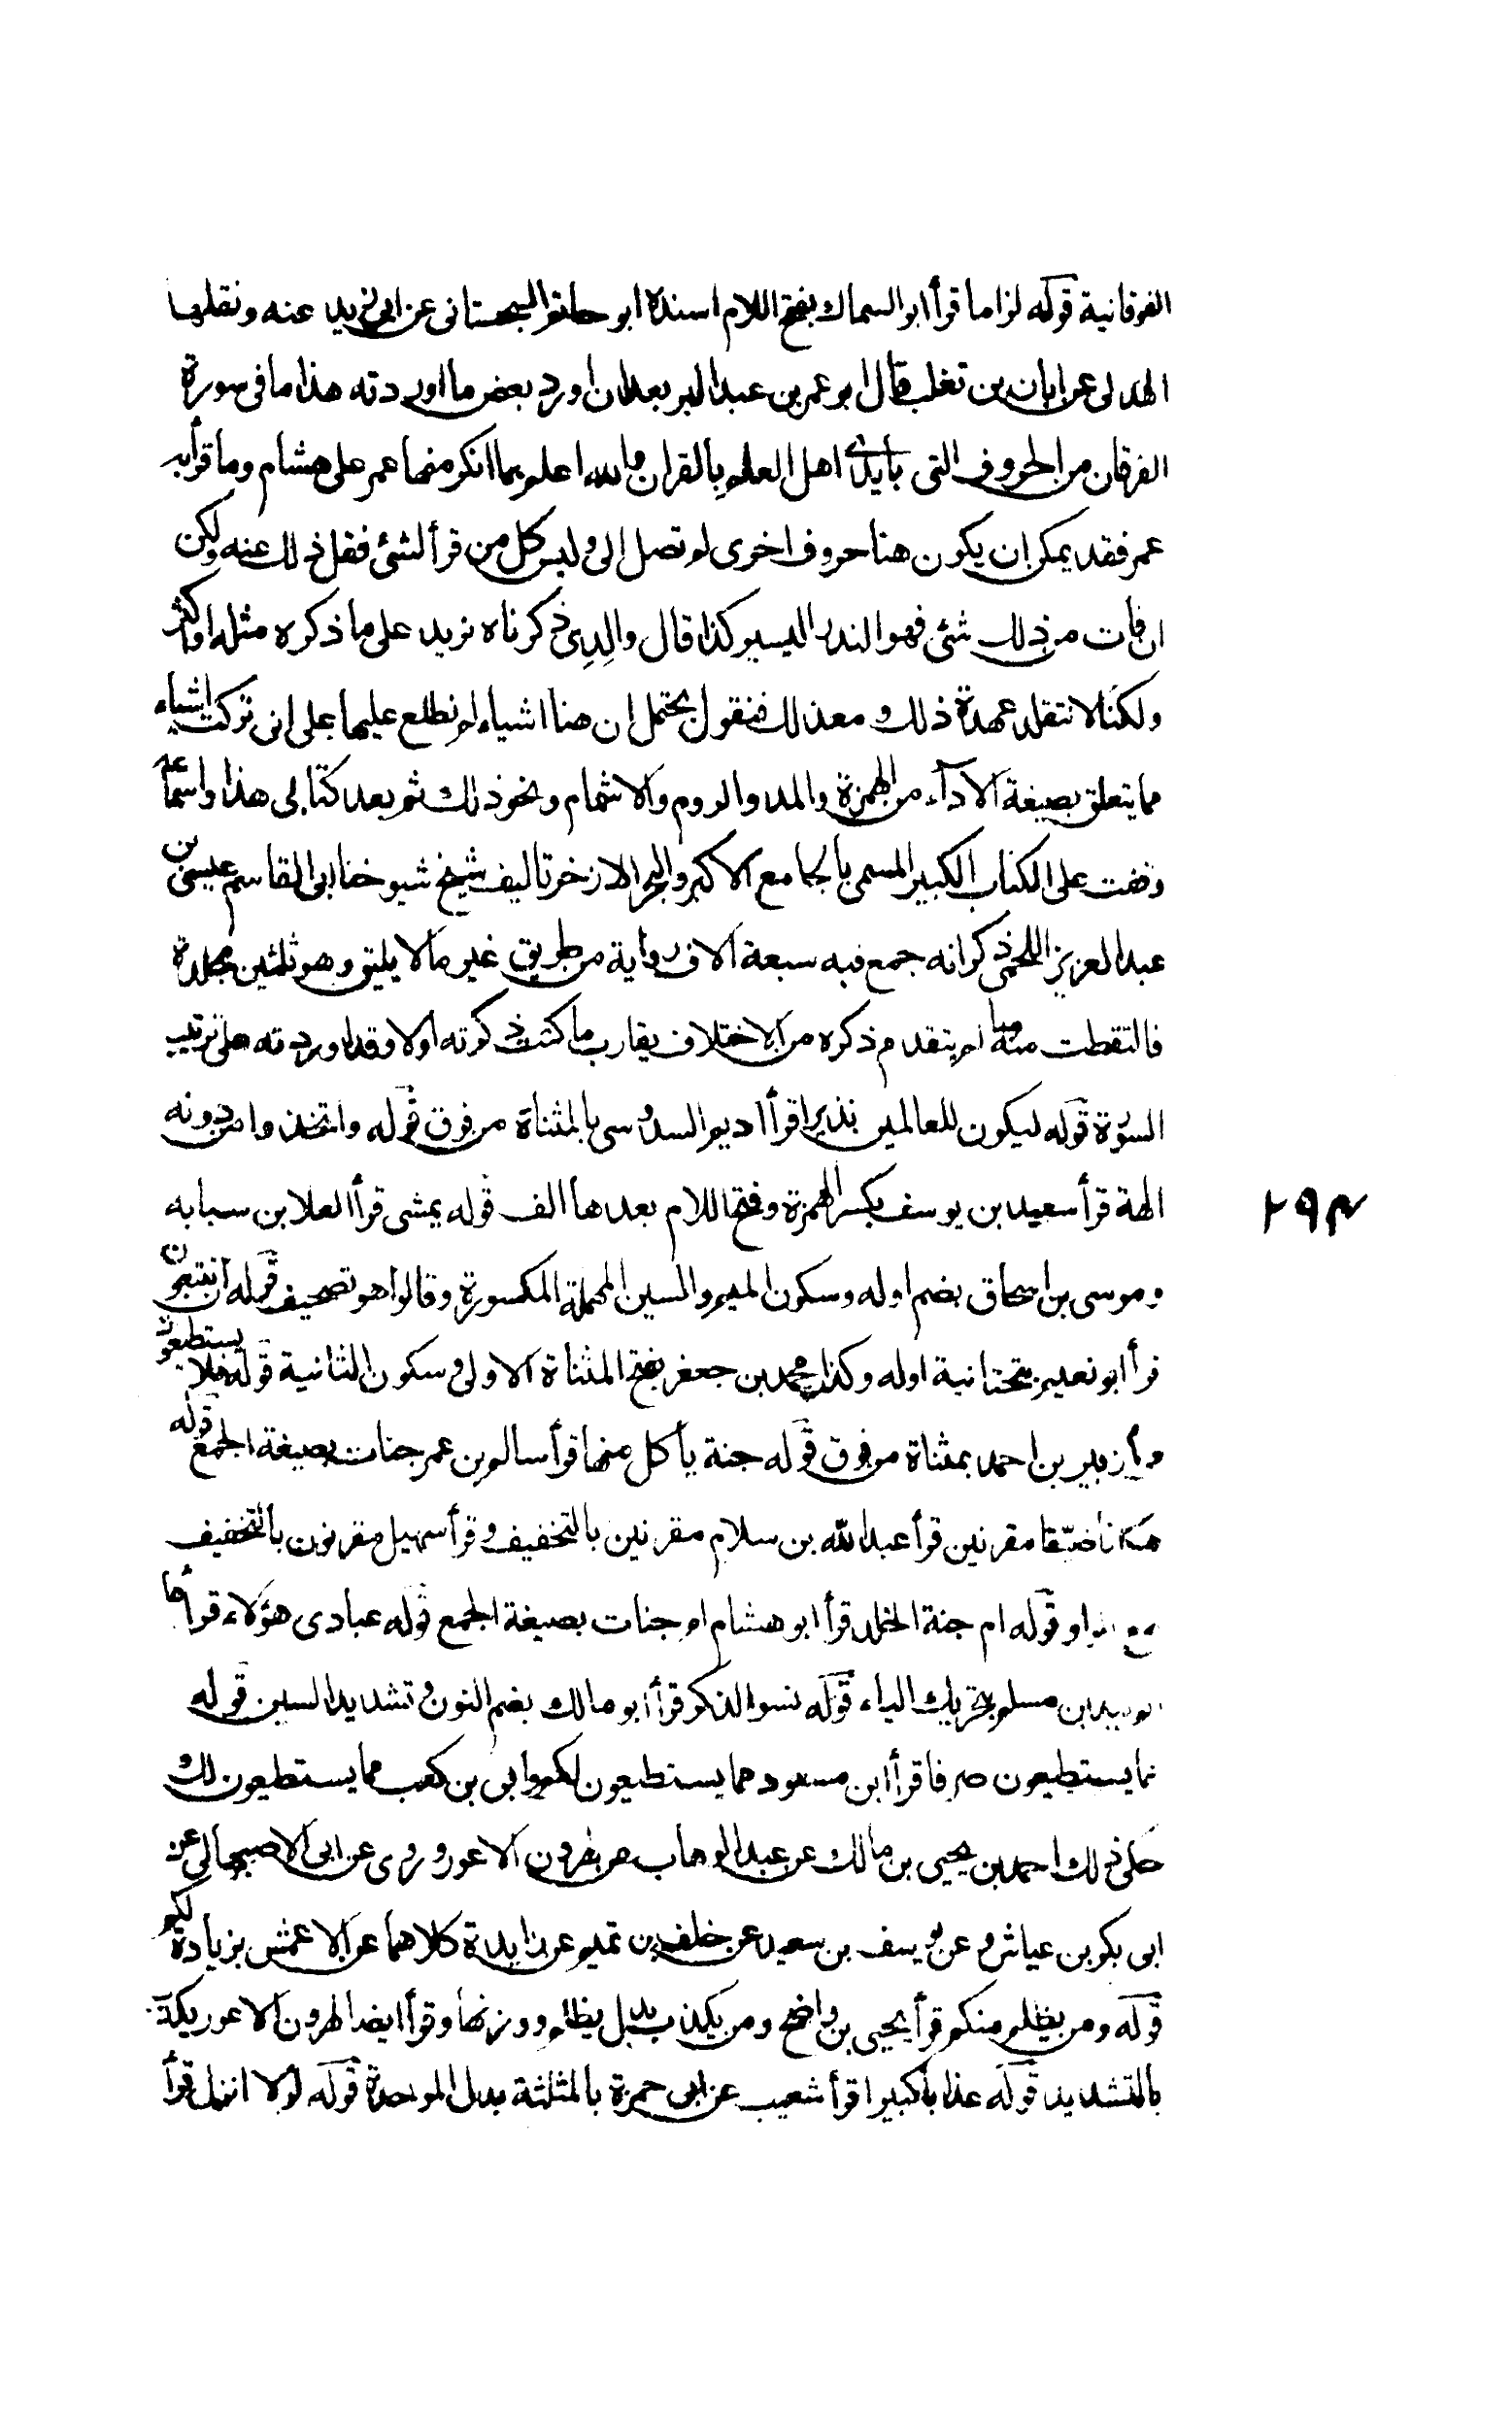 الفوقانية قوله لزاما قرأ ابو السماك بفتح اللام اسنده ابو حاتم السجستانى عن ابى زيد عنه ونقلها
الهذلى عن ابان بن تغلب قال ابو عمر بن عبد البر بعد ان اورد بعض ما اوردته هذا ما فى سورة
الفرقان من الحروف التى بأيدى اهل العلم بالقران والله اعلم بما انكر منها عمر على هشام وما قرأ به
عمر فقد يمكن ان يكون هنا حروف اخرى لم تصل الى وليس كل من قرأ لشئ فقل ذلك عنه ولكن
ان فات من ذلك شئ فهو الندر اليسير كذا قال والذى ذكرناه نزيد على ما ذكره مثله او اكثر
ولكنا لا نتقلد عهدة ذلك و معذلك فنقول يحتمل ان هنا اشياء لم نطلع عليها على انى تركت اشياء
مما يتعلق بصيغة الاداء من الهمزة والمد والروم والاشمام ونحو ذلك ثم بعد كتابى هذا واسماعه
وقفت على الكتاب الكبير المسمى بالجامع الاكبر والبحر الازخر تاليف شيخ شيوخنا ابى القاسم عيسى بن
عبد العزيز اللخمى ذكر انه جمع فيه سبعة الاف رواية من طريق غير ما لا يليق وهو ثلثين مجلدة
فالتقطت منه ما لم يتقدم ذكره من الاختلاف يقارب ما كنت ذكرته اولا وقد اوردته على ترتيب
السورة قوله ليكون للعالمين نذيرا قرأ اديم السدوسى بالمثناة من فوق قوله واتخذوا من دونه
الهة قرأ سعيد بن يوسف بكسر الهمزة وفتح اللام بعدها الف قوله يمشى قرأ العلا بن سبابه
وموسى بن اسحاق بضم اوله وسكون الميم والسين المهملة المكسورة وقالوا هو تصحيف قوله ان تتبعون
قرأ ابو نعيم بتحتانية اوله وكذا محمد بن جعفر بفتح المثناة الاولى وسكون الثانية قوله فلا يستطيعون
زبير بن احمد بمثناة من فوق قوله جنة يأكل منها قرأ سالم بن عمر جنات بصيغة الجمع قوله
مكانا ضيقا مقرنين قرأ عبد الله بن سلام مقرنين بالتخفيف وقرأ سهيل مقرنون بالتخفيف
مع الواو قوله ام جنة الخلد قرأ ابو هشام ام جنات بصيغة الجمع قوله عبادى هؤلاء قرأها
الوليد بن مسلم بتحريك الياء قوله نسوا الذكر قرأ ابو مالك بضم النون وتشديد السين قوله
فما يستطيعون صرفا قرأ ابن مسعود مما يستطيعون لكم وابى بن كعب مما يستطيعون لك
حكى ذلك احمد بن يحيى بن مالك عن عبد الوهاب عن هرون الاعور وروى عن ابى الاصبهانى عن
ابى بكر بن عياش وعن يوسف بن سعيد عن خلف بن تميم عن زايدة كلاهما عن الاعمش بزيادة لكم
قوله ومن يظلم منكم قرأ يحيى بن واضح ومن يكذب بدل يظلم ووزنها وقرأ ايضا هرون الاعور يكذب
بالتشديد قوله عذابا كبيرا قرأ شعيب عن ابى حمزة بالمثلثة بدل الموحدة قوله لولا انزل قرأ
۲۹۴